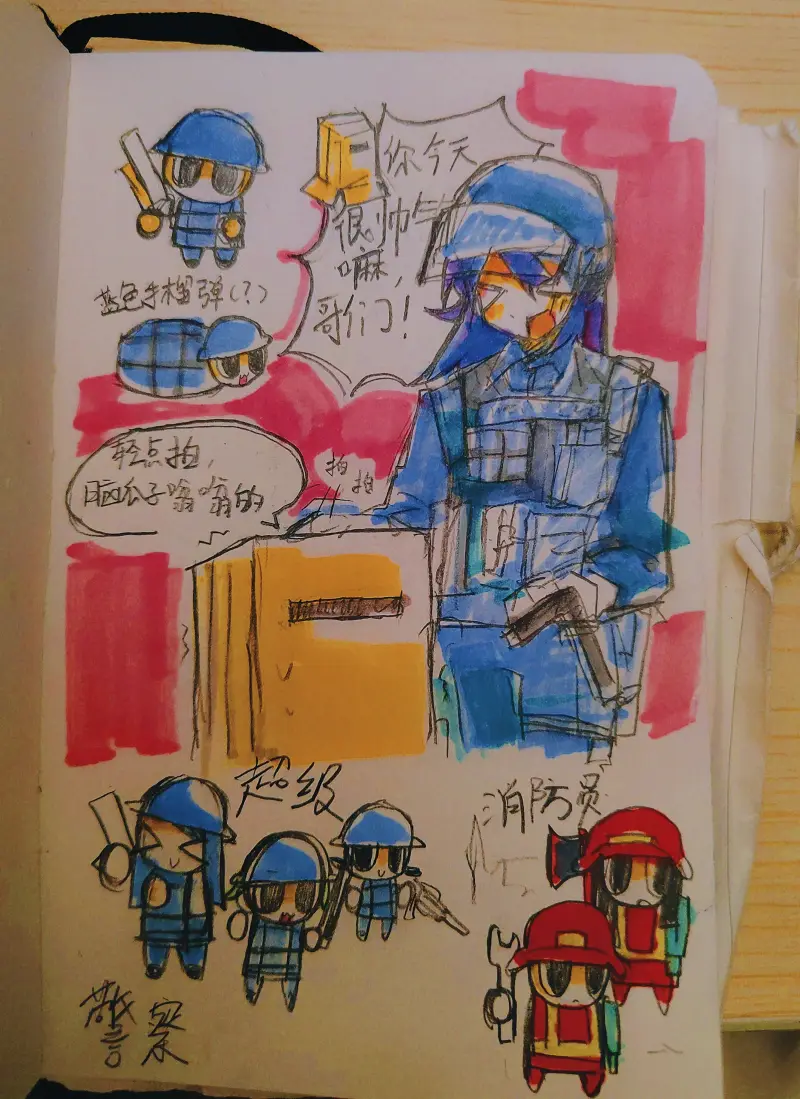 你今天
很帅气
嘛,
哥们!
蓝色手榴弹(?)
轻点拍,
脑瓜子嗡嗡的
拍
拍
超级
警察
消防员